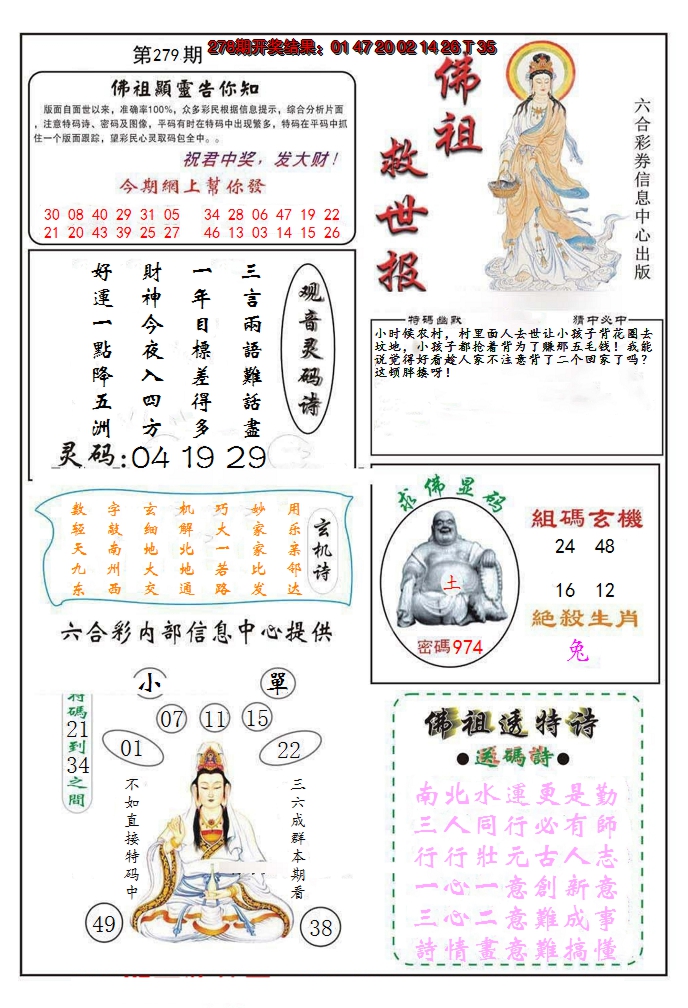 第279期
278期开奖结果：01 47 20 02 14 26 T 35
佛祖顯靈告你知
版面自面世以来，准确率100%，众多彩民根据信息提示，综合分析片面
，注意特码诗、密码及图像，平码有时在特码中出现繁多，特码在平码中抓
住一个版面跟踪，望彩民心灵取码包全中。。
祝君中奖，发大财！
今期網上幫你發
30 08 40 29 31 05 34 28 06 47 19 22
21 20 43 39 25 27 46 13 03 14 15 26
佛祖
救世报
六合彩券信息中心出版
观音灵码诗
三言兩語難話盡
一年目標差得多
財神今夜入四方
好運一點降五洲
灵码:04 19 29
特碼幽默 猜中必中
小时候农村，村里面人去世让小孩子背花圈去
坟地，小孩子都抢着背为了赚那五毛钱！我能
说觉得好看趁人家不注意背了二个回家了吗？
这顿胖揍呀！
玄机诗
用乐亲邻达
妙家家比发
巧大一若路
机解北地通
玄细地大交
字敲南州西
数轻天九东
六合彩内部信息中心提供
求佛显码
土
密碼974
組碼玄機
24 48
16 12
絕殺生肖
兔
小 單
特碼21到34之間
07 11 15
01 22
不如直接特码中
三六成群本期看
49 38
佛祖透特诗
●送碼詩●
南北水運更是勤
三人同行必有師
行行壯元古人志
一心一意創新意
三心二意難成事
詩情畫意難搞懂